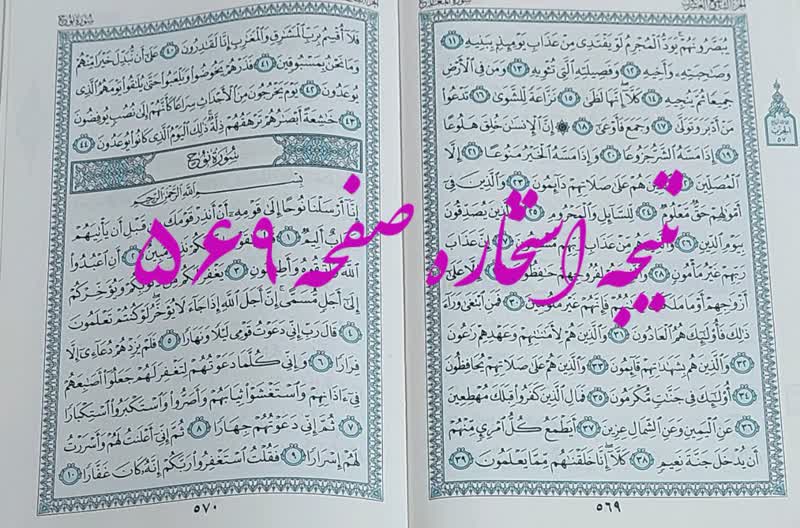 سُورَةُ المَعَارِجِ
الجُزْءُ التَّاسِعُ وَالعِشْرُونَ
يُبَصَّرُونَهُمْ يَوَدُّ الْمُجْرِمُ لَوْ يَفْتَدِى مِنْ عَذَابِ يَوْمِئِذٍ بِبَنِيهِ ١١
وَصَاحِبَتِهِ وَأَخِيهِ ١٢ وَفَصِيلَتِهِ الَّتِى تُـْٔوِيهِ ١٣ وَمَن فِى الْأَرْضِ
جَمِيعًا ثُمَّ يُنجِيهِ ١٤ كَلَّا إِنَّهَا لَظَىٰ ١٥ نَزَّاعَةً لِّلشَّوَىٰ ١٦ تَدْعُوا
مَنْ أَدْبَرَ وَتَوَلَّىٰ ١٧ وَجَمَعَ فَأَوْعَىٰ ١٨ إِنَّ الْإِنسَانَ خُلِقَ هَلُوعًا
١٩ إِذَا مَسَّهُ الشَّرُّ جَزُوعًا ٢٠ وَإِذَا مَسَّهُ الْخَيْرُ مَنُوعًا ٢١ إِلَّا
الْمُصَلِّينَ ٢٢ الَّذِينَ هُمْ عَلَىٰ صَلَاتِهِمْ دَائِمُونَ ٢٣ وَالَّذِينَ فِى
أَمْوَالِهِمْ حَقٌّ مَّعْلُومٌ ٢٤ لِّلسَّائِلِ وَالْمَحْرُومِ ٢٥ وَالَّذِينَ يُصَدِّقُونَ
بِيَوْمِ الدِّينِ ٢٦ وَالَّذِينَ هُم مِّنْ عَذَابِ رَبِّهِم مُّشْفِقُونَ ٢٧ إِنَّ عَذَابَ
رَبِّهِمْ غَيْرُ مَأْمُونٍ ٢٨ وَالَّذِينَ هُمْ لِفُرُوجِهِمْ حَافِظُونَ ٢٩ إِلَّا عَلَىٰ
أَزْوَاجِهِمْ أَوْ مَا مَلَكَتْ أَيْمَانُهُمْ فَإِنَّهُمْ غَيْرُ مَلُومِينَ ٣٠ فَمَنِ ابْتَغَىٰ وَرَاءَ
ذَٰلِكَ فَأُولَٰئِكَ هُمُ الْعَادُونَ ٣١ وَالَّذِينَ هُمْ لِأَمَانَاتِهِمْ وَعَهْدِهِمْ رَاعُونَ
٣٢ وَالَّذِينَ هُم بِشَهَادَاتِهِمْ قَائِمُونَ ٣٣ وَالَّذِينَ هُمْ عَلَىٰ صَلَاتِهِمْ يُحَافِظُونَ
٣٤ أُولَٰئِكَ فِى جَنَّاتٍ مُّكْرَمُونَ ٣٥ فَمَالِ الَّذِينَ كَفَرُوا قِبَلَكَ مُهْطِعِينَ
٣٦ عَنِ الْيَمِينِ وَعَنِ الشِّمَالِ عِزِينَ ٣٧ أَيَطْمَعُ كُلُّ امْرِئٍ مِّنْهُمْ
أَن يُدْخَلَ جَنَّةَ نَعِيمٍ ٣٨ كَلَّا إِنَّا خَلَقْنَاهُم مِّمَّا يَعْلَمُونَ ٣٩
٥٦٩
سُورَةُ نُوحٍ
فَلَا أُقْسِمُ بِرَبِّ الْمَشَارِقِ وَالْمَغَارِبِ إِنَّا لَقَادِرُونَ ٤٠ عَلَىٰ أَن نُّبَدِّلَ خَيْرًا مِّنْهُمْ
وَمَا نَحْنُ بِمَسْبُوقِينَ ٤١ فَذَرْهُمْ يَخُوضُوا وَيَلْعَبُوا حَتَّىٰ يُلَاقُوا يَوْمَهُمُ الَّذِى
يُوعَدُونَ ٤٢ يَوْمَ يَخْرُجُونَ مِنَ الْأَجْدَاثِ سِرَاعًا كَأَنَّهُمْ إِلَىٰ نُصُبٍ يُوفِضُونَ
٤٣ خَاشِعَةً أَبْصَارُهُمْ تَرْهَقُهُمْ ذِلَّةٌ ذَٰلِكَ الْيَوْمُ الَّذِى كَانُوا يُوعَدُونَ ٤٤
سُورَةُ نُوحٍ
بِسْمِ اللَّهِ الرَّحْمَٰنِ الرَّحِيمِ
إِنَّا أَرْسَلْنَا نُوحًا إِلَىٰ قَوْمِهِ أَنْ أَنذِرْ قَوْمَكَ مِن قَبْلِ أَن يَأْتِيَهُمْ
عَذَابٌ أَلِيمٌ ١ قَالَ يَا قَوْمِ إِنِّى لَكُمْ نَذِيرٌ مُّبِينٌ ٢ أَنِ اعْبُدُوا
اللَّهَ وَاتَّقُوهُ وَأَطِيعُونِ ٣ يَغْفِرْ لَكُم مِّن ذُنُوبِكُمْ وَيُؤَخِّرْكُمْ
إِلَىٰ أَجَلٍ مُّسَمًّى إِنَّ أَجَلَ اللَّهِ إِذَا جَاءَ لَا يُؤَخَّرُ لَوْ كُنتُمْ تَعْلَمُونَ
٤ قَالَ رَبِّ إِنِّى دَعَوْتُ قَوْمِى لَيْلًا وَنَهَارًا ٥ فَلَمْ يَزِدْهُمْ دُعَائِى إِلَّا
فِرَارًا ٦ وَإِنِّى كُلَّمَا دَعَوْتُهُمْ لِتَغْفِرَ لَهُمْ جَعَلُوا أَصَابِعَهُمْ
فِى آذَانِهِمْ وَاسْتَغْشَوْا ثِيَابَهُمْ وَأَصَرُّوا وَاسْتَكْبَرُوا اسْتِكْبَارًا
٧ ثُمَّ إِنِّى دَعَوْتُهُمْ جِهَارًا ٨ ثُمَّ إِنِّى أَعْلَنتُ لَهُمْ وَأَسْرَرْتُ
لَهُمْ إِسْرَارًا ٩ فَقُلْتُ اسْتَغْفِرُوا رَبَّكُمْ إِنَّهُ كَانَ غَفَّارًا ١٠
٥٧٠
نتیجه استخاره صفحه ۵۶۹